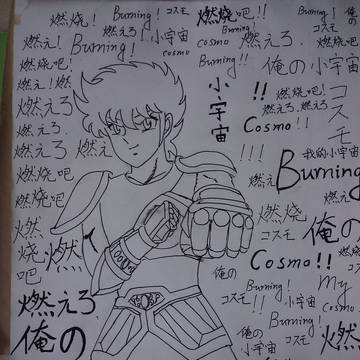 燃烧! Burning! コスモ 燃烧吧!! Burning! 俺の
燃え! Burning! 小宇宙 燃えろ. コスモ
燃烧吧! cosmo Burning! cosmo 燃烧吧
燃え! 燃 燃えろ Burning!! 俺の小宇宙
燃えろ 小宇宙 !! 燃烧吧! コスモ
燃えろ. 燃えろ.燃えろ
燃えろ 燃え Cosmo!!
燃烧吧 !!! 我的小宇宙
燃烧吧 燃え Burning
燃烧吧 燃 燃烧 俺の
コスモ
俺の Cosmo!!
燃えろ Burning! My
コスモ 小宇宙 Cosmo
俺の Burning! 燃
コスモ 小宇宙!